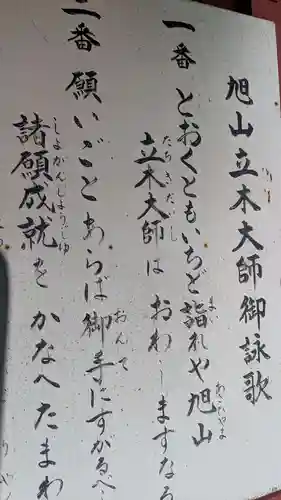 旭山立木大師御詠歌
一番 とおくともいちど詣れや旭山
立木大師は おわしますなる
二番 願いごとあらば御手にすがるべし
諸願成就を かなへたまわ